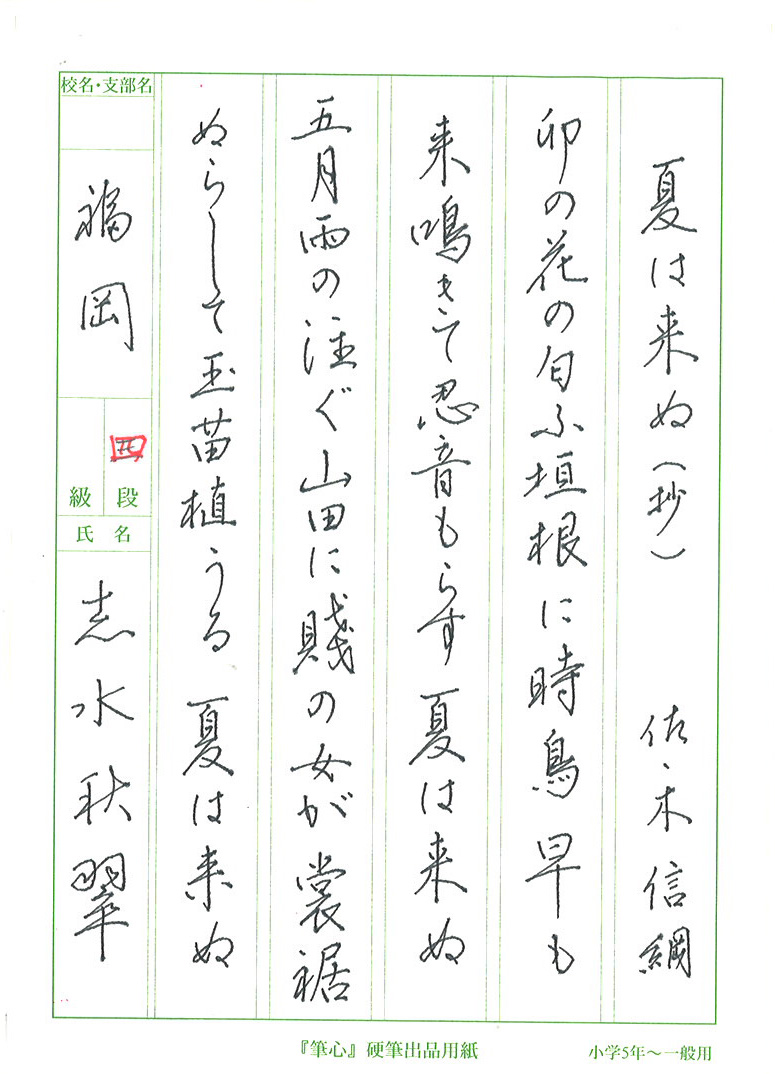 夏は来ぬ（抄）　佐々木信綱
卯の花の匂ふ垣根に時鳥 早も
来鳴きて忍音もらす 夏は来ぬ
五月雨の注ぐ山田に賤の女が裳裾
ぬらして玉苗植うる 夏は来ぬ
校名・支部名
福岡
四段
級
氏名
志水秋翠
『筆心』硬筆出品用紙
小学5年〜一般用